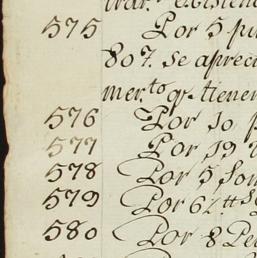 575 Por 5 pu
807. se apreci
mer.to qe. tienen
576 Por 10 p
577 Por 19
578 Por 5 Som
579 Por 6½ tt
580 Por 8 Pe